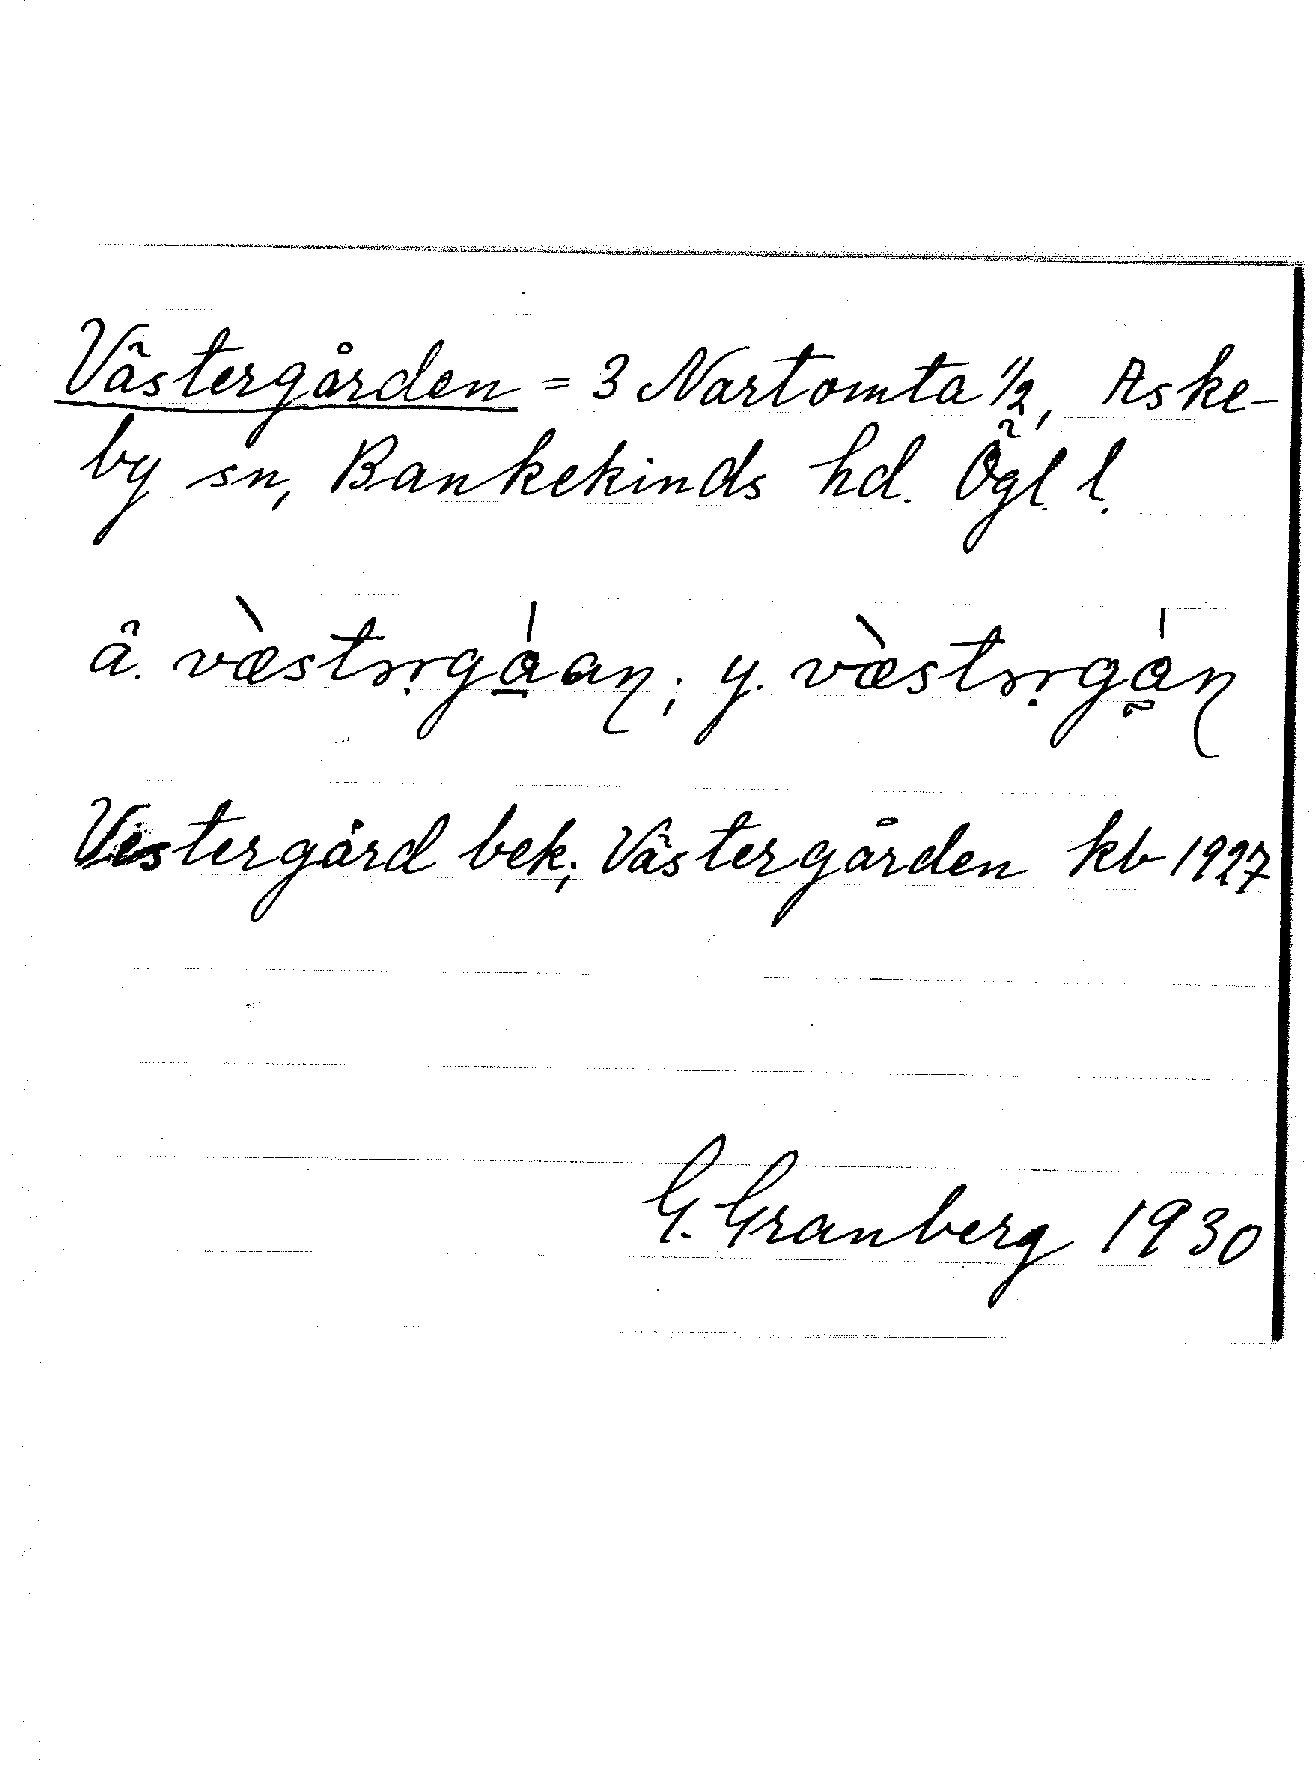 Västergården = 3 Nartomta 1/2, Aske-
by sn, Bankekinds hd. Ögl. l.
ä. væ̀stɩr̥gáaɳ; y. væ̀stɩr̥gáɳ
Vestergård bek; Västergården kb 1927
G. Granberg 1930